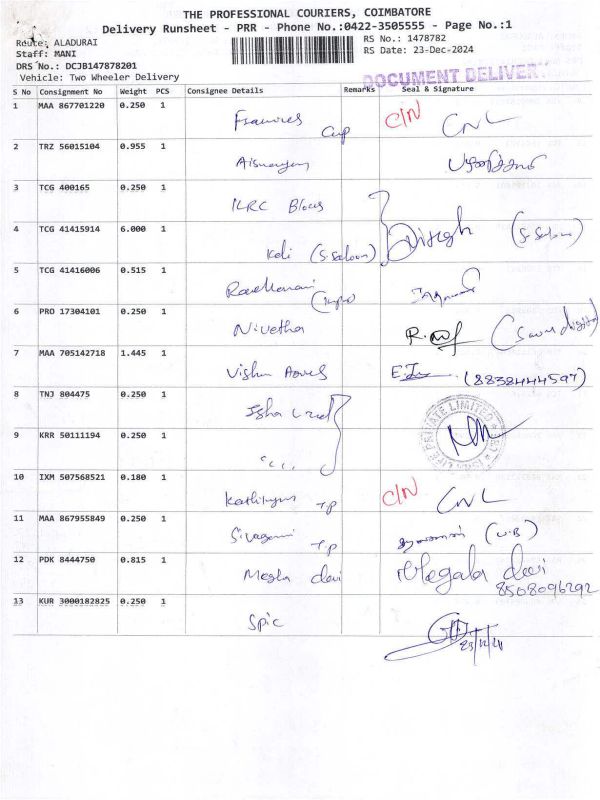 THE PROFESSIONAL COURIERS, COIMBATORE
Delivery Runsheet - PRR - Phone No.:0422-3505555 - Page No.:1
Route: ALADURAI
Staff: MANI
DRS No.: DCJB147878201
Vehicle: Two Wheeler Delivery
RS No.: 1478782
RS Date: 23-Dec-2024
DOCUMENT DELIVERY
S No Consignment No Weight PCS Consignee Details Remarks Seal & Signature
1 MAA 867701220 0.250 1 Cup C/N CNL
2 TRZ 56015104 0.955 1
3 TCG 400165 0.250 1 KRC Blocks
4 TCG 41415914 6.000 1 (S. Saloon) (S. Saloon)
5 TCG 41416006 0.515 1
6 PRO 17304101 0.250 1 Nivetha
7 MAA 705142718 1.445 1 Vishnu (8838444597)
8 TNJ 804475 0.250 1 Isha
PRIVATE LIMITED
9 KRR 50111194 0.250 1 " " "
10 IXM 507568521 0.180 1 TP C/N CNL
11 MAA 867955849 0.250 1 Sivagami TP
12 PDK 8444750 0.815 1 Megha devi Megala devi
8508096292
13 KUR 3000182825 0.250 1 Spic
23/12/24